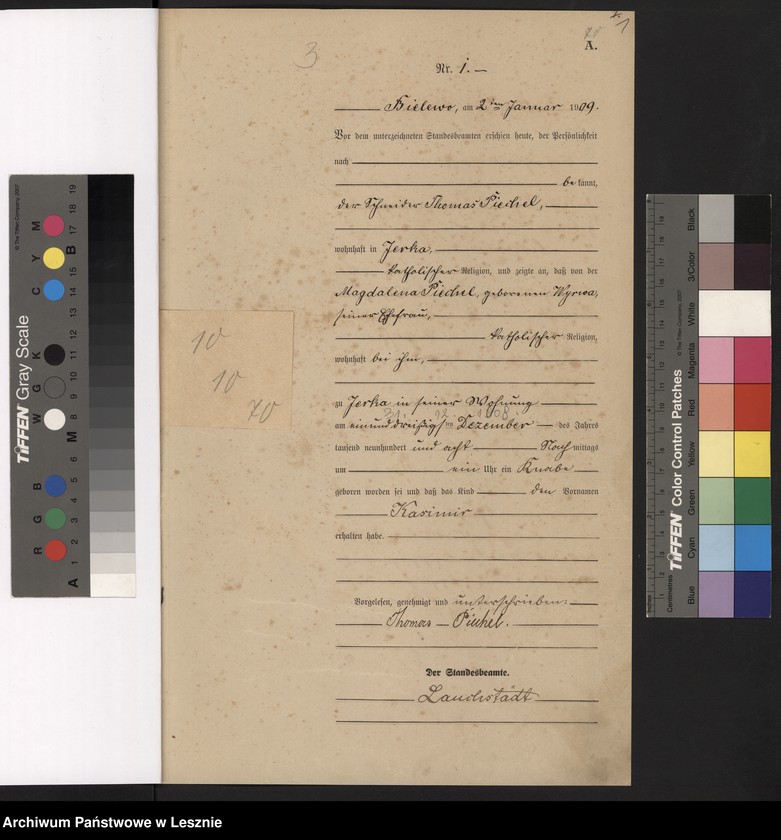 1
A.
3
Nr. 1.—
Bielewo, am 2ten Januar 1909.
Vor dem unterzeichneten Standesbeamten erschien heute, der Persönlichkeit
nach
bekannt,
der Schneider Thomas Piechel,
wohnhaft in Jerka,
katholischer Religion, und zeigte an, daß von der
Magdalena Piechel, geborenen Wyrwa,
seiner Ehefrau,
katholischer Religion,
wohnhaft bei ihm,
zu Jerka in seiner Wohnung
31. 12. 1908
am einunddreißigsten Dezember des Jahres
tausend neunhundert und acht Nachmittags
um ein Uhr ein Knabe
geboren worden sei und daß das Kind den Vornamen
Kasimir
erhalten habe.
Vorgelesen, genehmigt und unterschrieben:
Thomas Piechel.
Der Standesbeamte.
Lauchstädt
10
10
70
© The Tiffen Company, 2007
TIFFEN Gray Scale
R G B W G K C Y M
A 1 2 3 4 5 6 M 8 9 10 11 12 13 14 15 B 17 18 19
TIFFEN Color Control Patches
© The Tiffen Company, 2007
Centimetres
Blue Cyan Green Yellow Red Magenta White 3/Color Black
Archiwum Państwowe w Lesznie